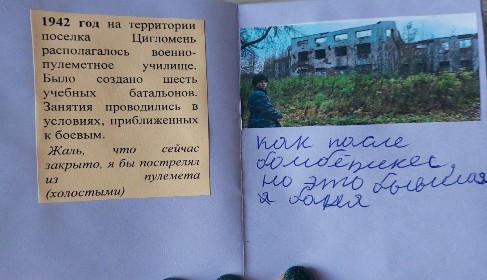 1942 год на территории
поселка Цигломень
располагалось военно-
пулеметное училище.
Было создано шесть
учебных батальонов.
Занятия проводились в
условиях, приближенных
к боевым.
Жаль, что сейчас
закрыто, я бы пострелял
из пулемета
(холостыми)
как после
бомбёжкес,
но это бывшая
я баня